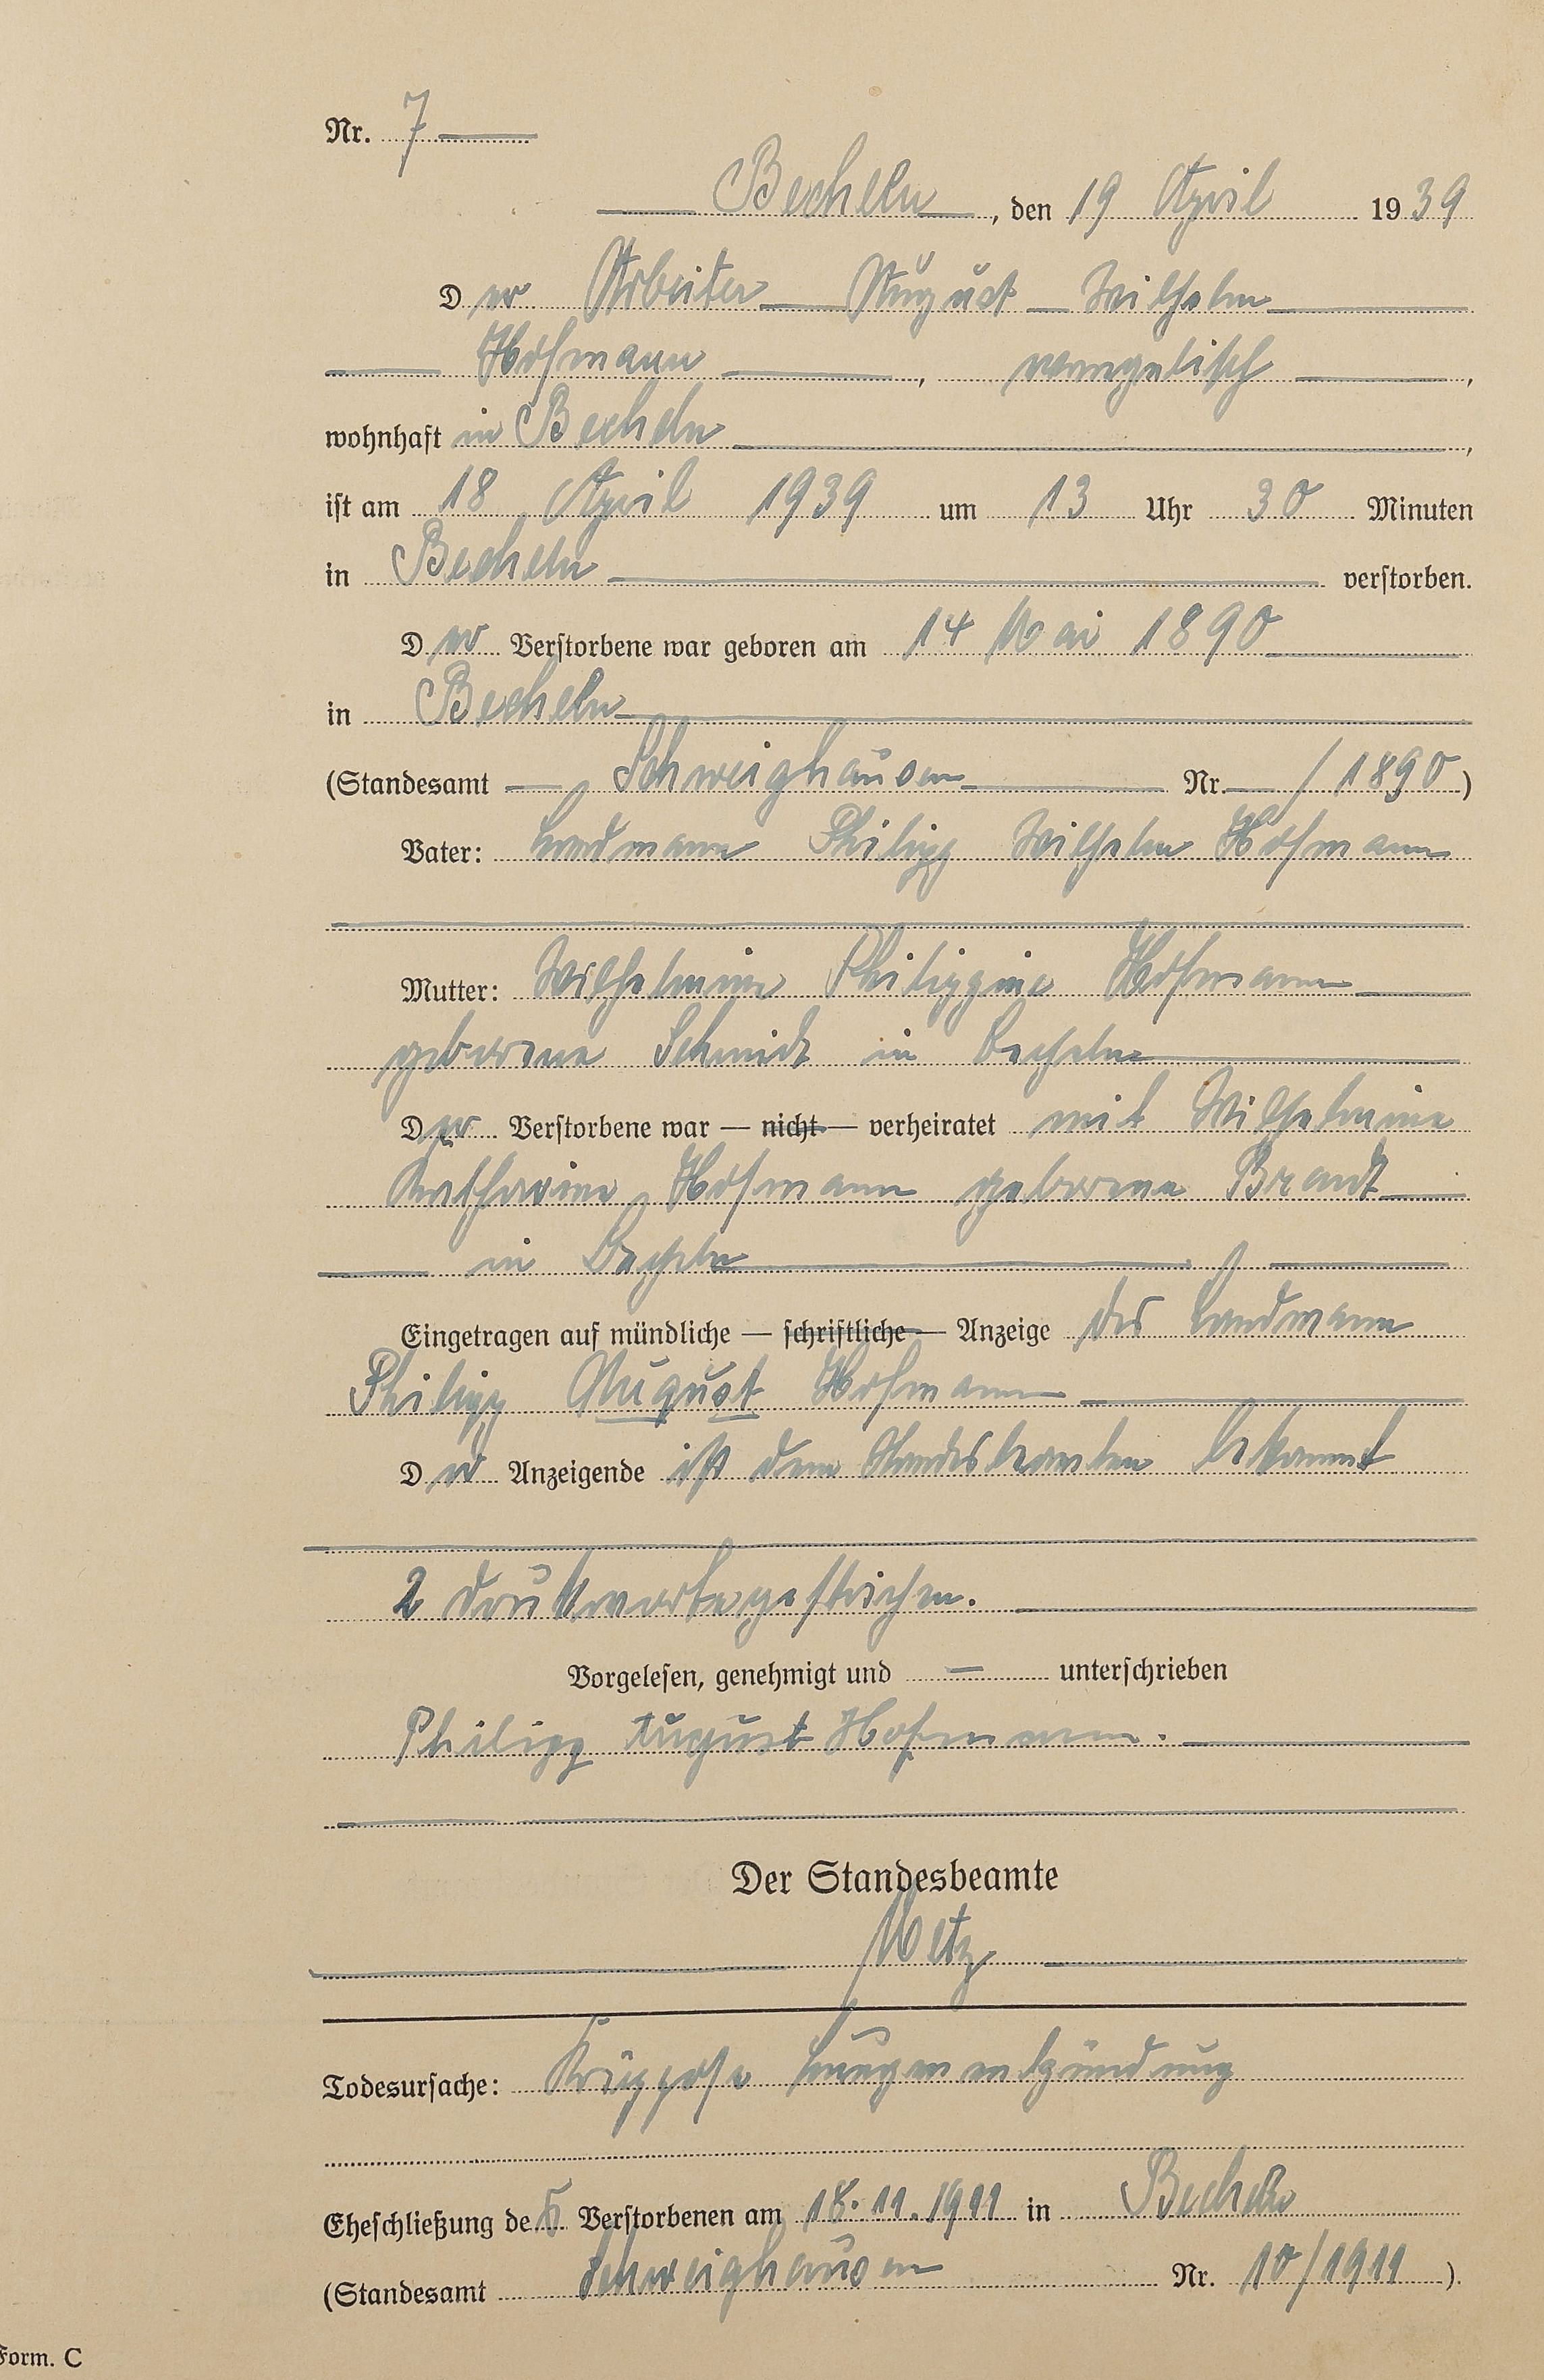 Nr. 7
Becheln, den 19 April 1939
Der Arbeiter August Wilhelm
Hofmann, evangelisch,
wohnhaft in Becheln,
ist am 18 April 1939 um 13 Uhr 30 Minuten
in Becheln verstorben.
Der Verstorbene war geboren am 14 Mai 1890
in Becheln
(Standesamt Schweighausen Nr. — / 1890)
Vater: Landmann Philipp Wilhelm Hofmann
Mutter: Wilhelmine Philippine Hofmann
geborene Schmidt in Becheln
Der Verstorbene war — nicht — verheiratet mit Wilhelmine
Katharine Hofmann geborene Brandt
in Becheln
Eingetragen auf mündliche — schriftliche — Anzeige des Landmann
Philipp August Hofmann
Der Anzeigende ist dem Standesbeamten bekannt
2 Druckworte gestrichen.
Vorgelesen, genehmigt und — unterschrieben
Philipp August Hofmann.
Der Standesbeamte
Metz
Todesursache: Kruppose Lungenentzündung
Eheschließung des Verstorbenen am 18.11.1911 in Becheln
(Standesamt Schweighausen Nr. 10/1911).
Form. C